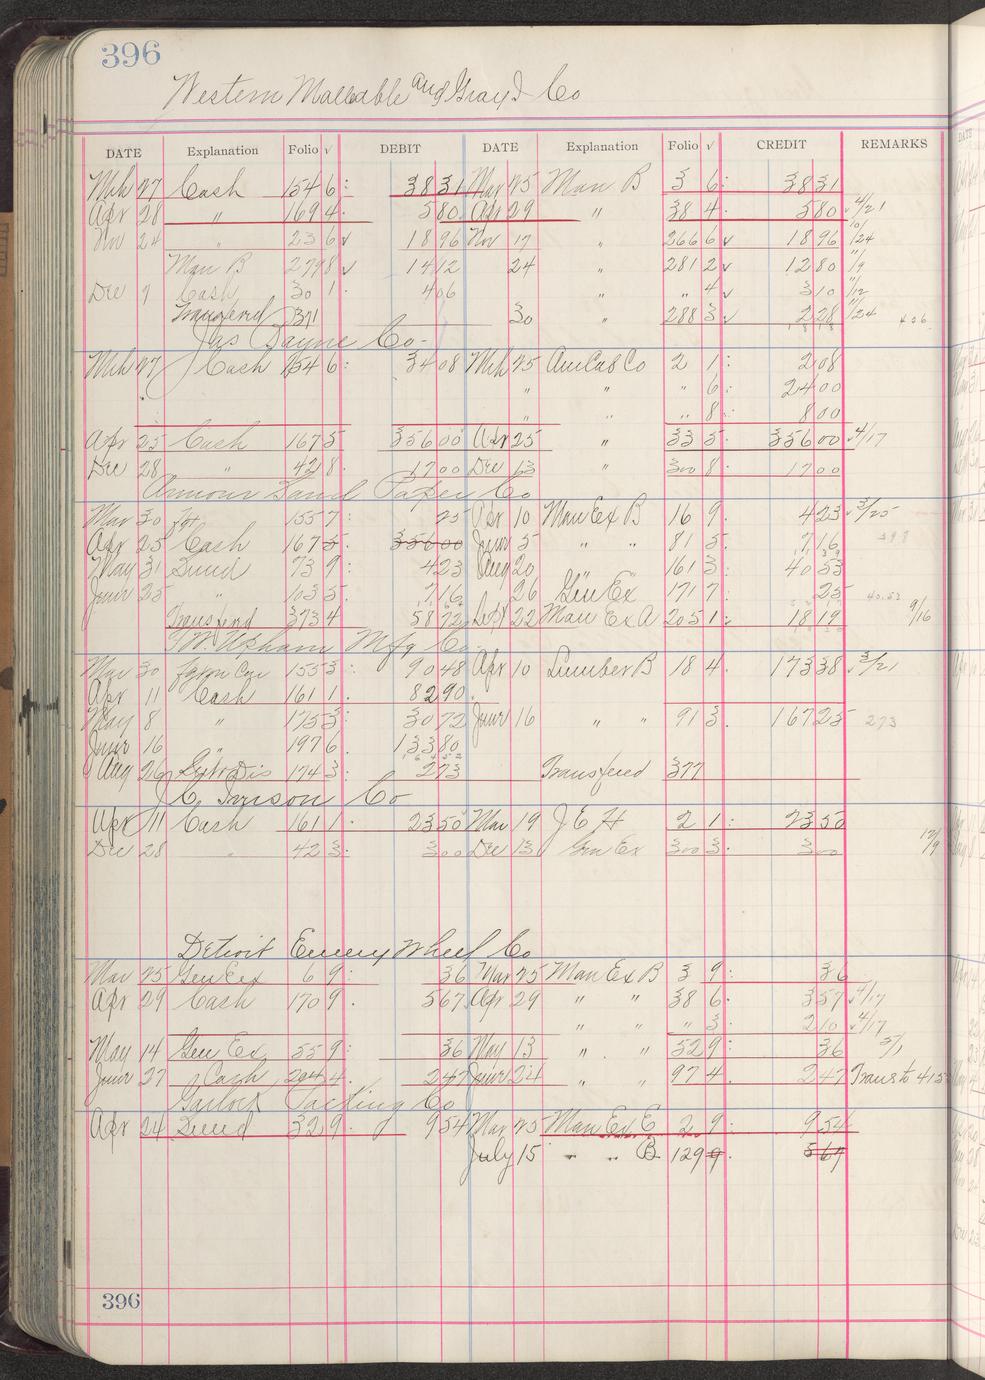 396
Western Malleable and Gray I Co
DATE Explanation Folio √ DEBIT DATE Explanation Folio √ CREDIT REMARKS
Mch 27 Cash 154 6: 38 31 Mar 25 Man B 3 6: 38 31
Apr 28 " 169 4. 5 80 Apr 29 " 38 4. 5 80 √ 4/21
Nov 24 " 23 6 √ 18 96 Nov 17 " 266 6 √ 18 96 10/24
Man B 279 8 √ 14 12 24 " 281 2 √ 12 80 11/9
Dec 9 Cash 30 1. 4 06 " " 4 √ 3 10 11/12
Transferred 371 30 " 288 3 √ 2 28 11/24 4 06
Jas Co
Mch 27 Cash 154 6: 34 08 Mch 25 Am Cas Co 2 1: 2 08
" " 6: 24 00
" " 8: 8 00
Apr 25 Cash 167 5 356 00 Apr 25 " 33 5. 356 00 √ 4/17
Dec 28 " 42 8. 17 00 Dec 13 " 300 8. 17 00
Armour Sand Paper Co
Mar 30 Frt 155 7: 25 Apr 10 Man Ex B 16 9. 4 23 √ 3/25
Apr 25 Cash 167 5. 356 00 June 5 " " 81 5. 7 16 398
May 31 Sund 73 9: 4 23 Aug 20 161 3: 40 53
June 25 " 103 5. 7 16 26 Gen Ex 171 7 25 40.53
Transferd 373 4 58 72 Sept 22 Man Ex A 205 1: 18 19 9/16
Upham Mfg Co
Mar 30 155 3: 90 48 Apr 10 Lumber B 18 4. 173 38 √ 3/21
Apr 11 Cash 161 1. 82 90.
May 8 " 175 3: 30 72 June 16 " " 91 3. 167 25 2 73
June 16 " 197 6. 133 80
Aug 26 Dis 174 3: 2 73 Transfered 377
J C Co
Apr 11 Cash 161 1. 23 50 Mar 19 J E H 2 1: 23 50
Dec 28 " 42 3: 3 00 Dec 13 Gen Ex 300 3. 3 00 12/9
Detroit Emery Wheel Co
Mar 25 Gen Ex 6 9: 36 Mar 25 Man Ex B 3 9: 36
Apr 29 Cash 170 9. 5 67 Apr 29 " " 38 6. 3 57 √ 4/17
" " " 3: 2 10 √ 4/17
May 14 Gen Ex 55 9: 36 May 13 " " 52 9: 36 5/1
June 27 Cash 204 4. 2 47 June 24 " " 97 4. 2 47 Trans to 415
Garlock Packing Co
Apr 24 Sund 32 9. 9 54 Mar 25 Man Ex E 2 9: 9 54
July 15 " " B 129 9. 5 67
396